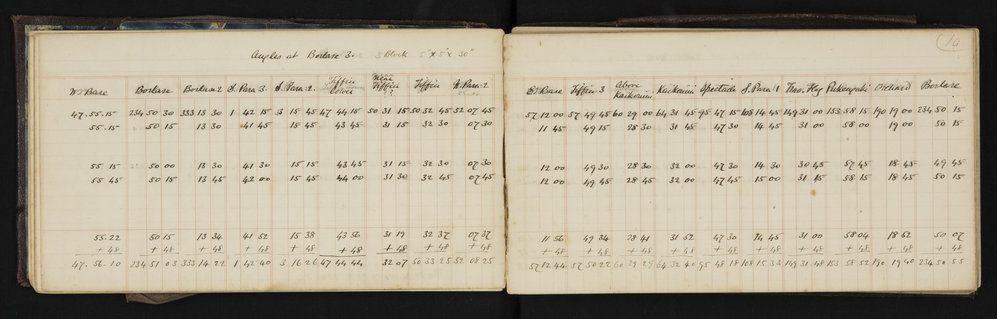 14
Angles at Borlase 3. Block 5" x 5" x 30"
W. Base Borlase Borlase 2 S. Para 3. S. Para 2. Tiffin Tiffin Tiffin N. Para 2
47. 55. 15 234 50 30 333 13 30 1 42 15 3 15 45 47 44 15 50 31 15 50 32 45 52 07 45
55. 15 50 15 13 30 41 45 15 45 43 45 31 15 32 30 07 30
55. 15 50 00 13 30 41 30 15 15 43 45 31 15 32 30 07 30
55 45 50 15 13 45 42 00 15 45 44 00 31 30 32 45 07 45
55. 22 50 15 13 34 41 52 15 38 43 56 31 19 32 37 07 37
+ 48 + 48 + 48 + 48 + 48 + 48 + 48 + 48 + 48
47. 56. 10 234 51 03 333 14 22 1 42 40 3 16 26 47 44 44 32 07 50 33 25 52 08 25
E. Base Tiffin 3 Above Karkonini Karkonini Apeitude S. Para 1 Theo. Flag Pukengaki Orchard Borlase
57 12 00 57 49 45 60 29 00 64 31 45 95 47 15 108 14 45 149 31 00 153 58 15 190 19 00 234 50 15
11 45 49 15 28 30 31 45 47 30 14 45 31 00 58 00 19 00 50 15
12 00 49 30 28 30 32 00 47 30 14 30 30 45 57 45 18 45 49 45
12 00 49 45 28 45 32 00 47 45 15 00 31 15 58 15 18 45 50 15
11 56 49 34 28 41 31 52 47 30 14 45 31 00 58 04 18 52 50 07
+ 48 + 48 + 48 + 48 + 48 + 48 + 48 + 48 + 48 + 48
57 12 44 57 50 22 60 29 29 64 32 40 95 48 18 108 15 33 149 31 48 153 58 52 190 19 40 234 50 55